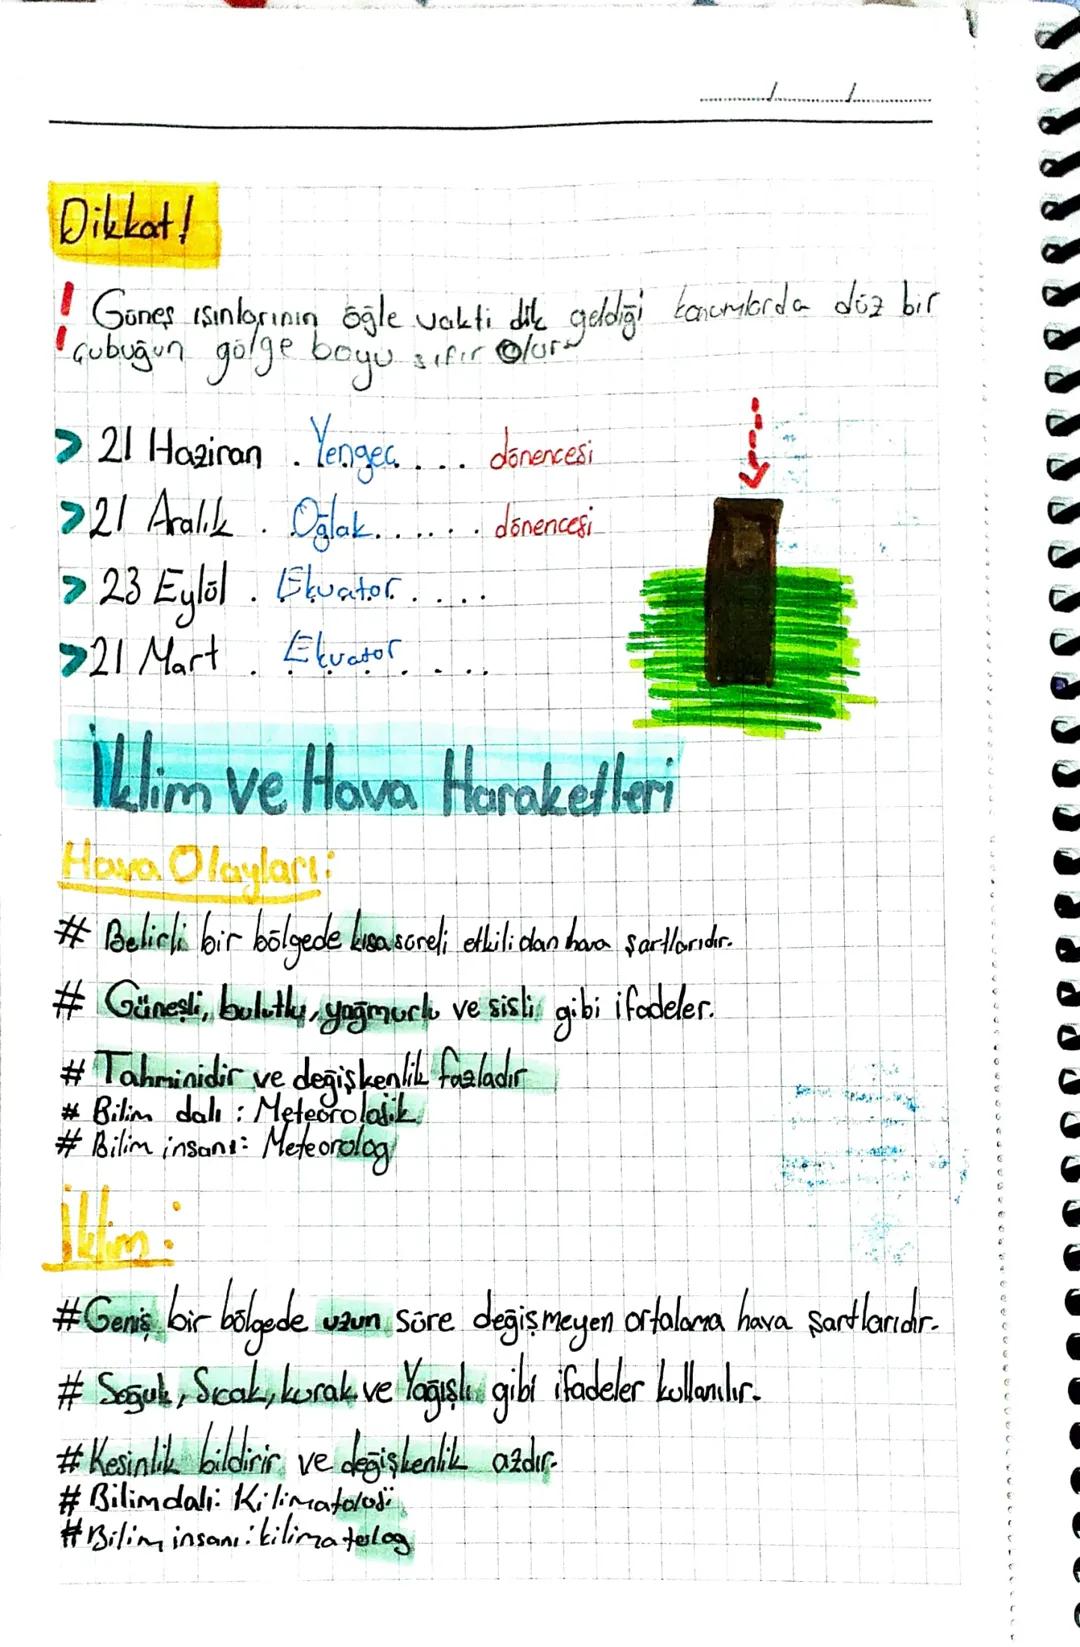 Dikkat!
! Güneş ışınlarının öğle vakti dik geldiği konumlarda düz bir
! çubuğun gölge boyu sıfır olur
> 21 Haziran . Yengeç.... dönencesi
> 21 Aralık . Oğlak...... dönencesi
> 23 Eylül . Ekvator.....
> 21 Mart . Ekvator.....
İklim ve Hava Haraketleri
Hava Olayları:
# Belirli bir bölgede kısa süreli etkili olan hava şartlarıdır.
# Güneşli, bulutlu, yağmurlu ve sisli gibi ifadeler.
# Tahminidir ve değişkenlik fazladır
# Bilim dalı : Meteorolojik
# Bilim insanı: Meteorolog
İklim:
# Geniş bir bölgede uzun süre değişmeyen ortalama hava şartlarıdır.
# Soğuk, Sıcak, kurak ve Yağışlı gibi ifadeler kullanılır.
# Kesinlik bildirir ve değişkenlik azdır.
# Bilim dalı: Kilimatoloji
# Bilim insanı: kilimatolog